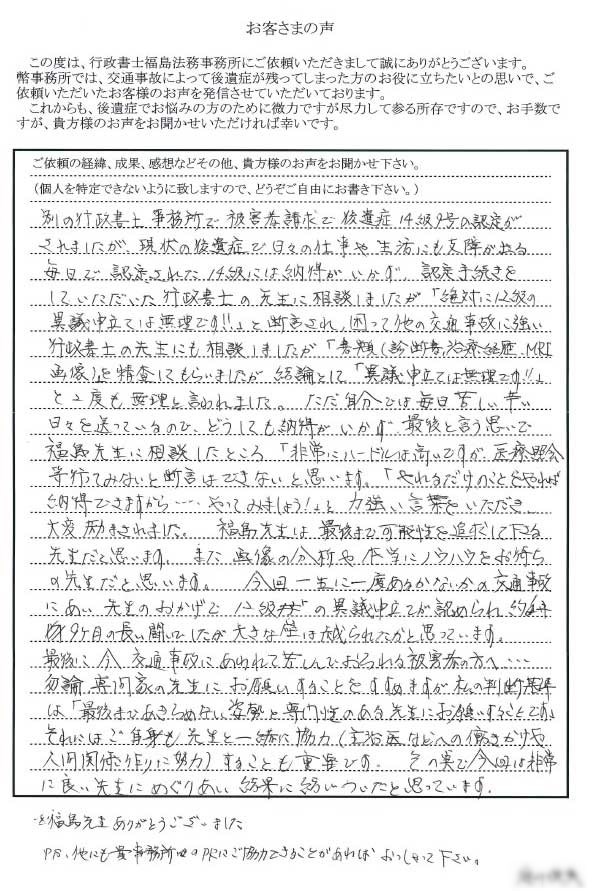 お客さまの声
この度は、行政書士福島法務事務所にご依頼いただきまして誠にありがとうございます。
幣事務所では、交通事故によって後遺症が残ってしまった方のお役に立ちたいとの思いで、ご
依頼いただいたお客様のお声を発信させていただいております。
これからも、後遺症でお悩みの方のために微力ですが尽力して参る所存ですので、お手数で
すが、貴方様のお声をお聞かせいただければ幸いです。
ご依頼の経緯、成果、感想などその他、貴方様のお声をお聞かせ下さい。
(個人を特定できないように致しますので、どうぞご自由にお書き下さい。)
別の行政書士事務所で被害者請求で後遺症14級9号の認定が
されましたが、現状の後遺症で日々の仕事や生活にも支障が出る
毎日で認定された14級には納得がいかず、認定手続きを
していただいた行政書士の先生に相談しましたが「絶対に12級の
異議申立ては無理です!!」と断言され、困って他の交通事故に強い
行政書士の先生にも相談しましたが「書類(診断書,治療経歴、MRI
画像)を精査してもらいましたが結論として「異議申立ては無理です!!」
と2度も無理と言われました。ただ自分では毎日苦しい辛い
日々を送っているので、どうしても納得がいかず、最後と言う思いで
福島先生に相談したところ「非常にハードルは高いですが、医療照会
等行ってみないと断言はできないと思います。「やれるだけのことをやれば
納得できますから‥‥やってみましょう!」と力強い言葉をいただき、
大変励まされました。福島先生は最後まで可能性を追求して下さる
先生だと思います。また画像の分析や医学にノウハウをお持ち
の先生だと思います。今回一生に一度あるかないかの交通事故
にあい、先生のおかげで12級の異議申立てが認められ、約
9ケ月の長い闘いでしたが大きな壁は破られたかと思っています。
最後に、今、交通事故にあわれて苦しんでおられる被害者の方へ‥‥
勿論、専門家の先生にお願いすることをすすめますが、私の判断基準
は「最後まであきらめない姿勢と専門性のある先生にお願いすることです。
それにはご自身も先生と一緒に協力(主治医などへの働きかけや
人間関係作りに努力)することも重要です。その実で今回は非常
に良い先生にめぐりあい、結果に結いついたと思っています。
福島先生ありがとうございました
PS、他にも貴事務所のPRにご協力できることがあれば、おっしゃって下さい。